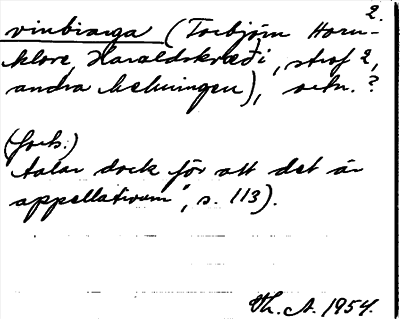 2.
vinbiarga (Torbjörn Horn-
klove, Haraldskvæði, strof 2,
andra helmingen), ortn.?
(forts.)
talar dock för att det är
appellativum", s. 113).
Th. A. 1954.